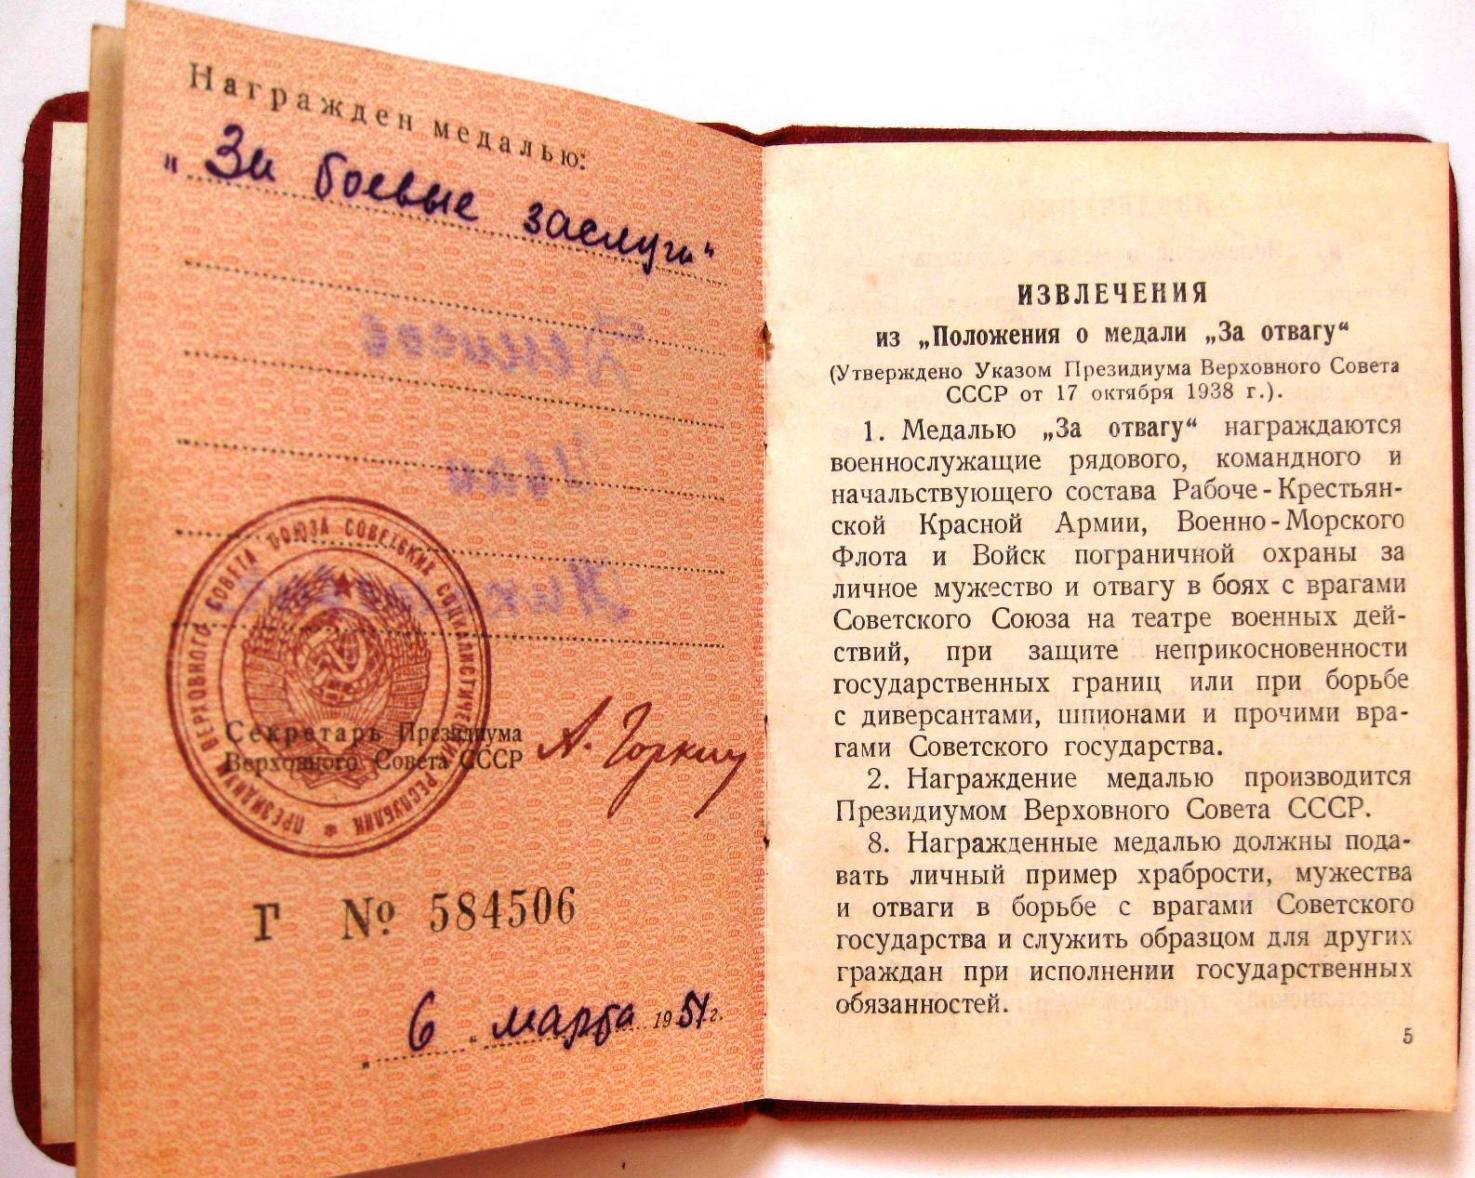 Награжден медалью:
„За боевые заслуги“
ПРЕЗИДИУМ ВЕРХОВНОГО СОВЕТА СОЮЗА СОВЕТСКИХ СОЦИАЛИСТИЧЕСКИХ РЕСПУБЛИК
Секретарь Президиума
Верховного Совета СССР
А. Горкин
Г № 584506
„6„ марта 1951г.
ИЗВЛЕЧЕНИЯ
из „Положения о медали „За отвагу“
(Утверждено Указом Президиума Верховного Совета
СССР от 17 октября 1938 г.).
1. Медалью „За отвагу“ награждаются
военнослужащие рядового, командного и
начальствующего состава Рабоче-Крестьян-
ской Красной Армии, Военно-Морского
Флота и Войск пограничной охраны за
личное мужество и отвагу в боях с врагами
Советского Союза на театре военных дей-
ствий, при защите неприкосновенности
государственных границ или при борьбе
с диверсантами, шпионами и прочими вра-
гами Советского государства.
2. Награждение медалью производится
Президиумом Верховного Совета СССР.
8. Награжденные медалью должны пода-
вать личный пример храбрости, мужества
и отваги в борьбе с врагами Советского
государства и служить образцом для других
граждан при исполнении государственных
обязанностей.
5